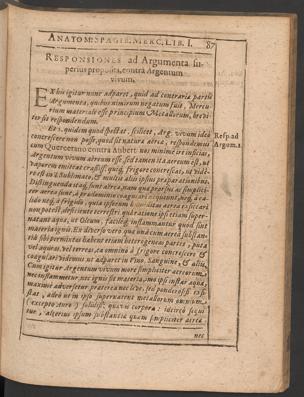 ANATOM: SPAGIR. MERC, LIB. I. 87
RESPONSIONES ad Argumenta su-
perius proposita, contra Argentum
vivum.
EX his igitur nunc adparet, quid ad contraria partis
Argumenta, quibus nimirum negatum fuit, Mercu-
rium materiale esse principium Metallorum, brevi-
ter sit respondendum.
Et 1. quidem quod spectat, scilicet, Arg. vivum ideò
concrescere non posse, quod sit natura aërea, respondemus
cum Quercetano contra Aubert. nos minimè it inficias,
Argentum vivum aëreum esse, sed tamen ita aëreum est, ut
vaporem emittat crassum, quiq; frigore concrescat, ut vide-
re est in Sublimato, & multis aliis ipsius præparationibus.
Distinguenda itaq; sunt aërea, nam quæ prorsus ac simplici-
ter aërea sunt, à
lido, neq; à frigido, quia ipsorum
non potest, deficiente terrestri, quâ ratione ipsi etiam super-
natant aquæ, ut Oleum, facileq; inflammantur quod sint
materia ignis. Ex diverso verò quæ unctum aërea substan-
tia sibi permistas habent etiam heterogeneas partes, puta
vel aqueas, vel terreas, ea omnino à frigore concrescere &
coagulari videmus ut adparet in Pino, Sanguine, & aliis.
Cum igitur Argentum vivum more simpliciter aëreorum,
nec inflammetur, nec ignis sit materia, imo ipsi instar aquæ
maximè adversetur præterea nec leve, sed ponderosum exi-
stat, adeò ut in ipso supernatent metallorum omnium
(excepto Auro) solidissima quævis corpora: idcircò sequi-
tur, alterius ipsum substantiæ quam simpliciter aërea
nec
Resp. ad
Argum. 1.